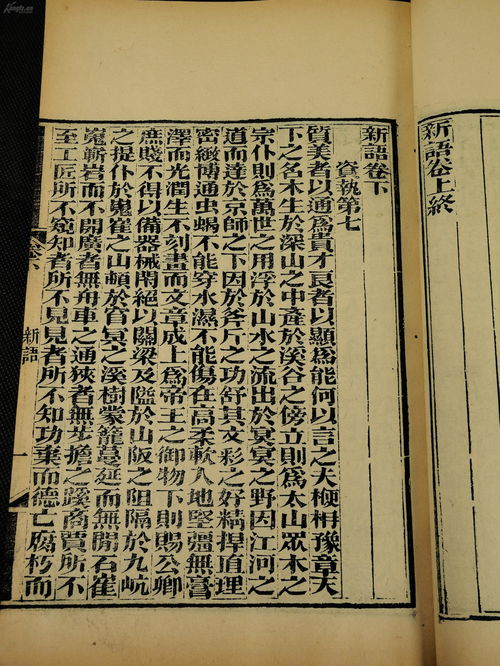 新語卷上終
新語卷下
資執第七
質美者以通爲貴才良者以顯爲能何以言之夫楩柟豫章天
下之名木生於深山之中產於溪谷之傍立則爲太山眾木之
宗仆則爲萬世之用浮於山水之流出於冥冥之野因江河之
道而達於京師之下因於斧斤之功舒其文彩之好精捍直理
密緻博通虫蝎不能穿水濕不能傷在高柔軟入地堅彊無膏
澤而光潤生不刻畫而文章成上爲帝王之御物下則賜公卿
庶賤不得以備器械閑絕以關梁及隘於山阪之阻隔於九㟁
之堤仆於嵬崔之山頓於窅冥之溪樹蒙籠蔓延而無間石崔
嵬嶄岩而不開廣者無舟車之通狹者無步擔之蹊商賈所不
至工匠所不窺知者所不見見者所不知功棄而德亡腐朽而
新語